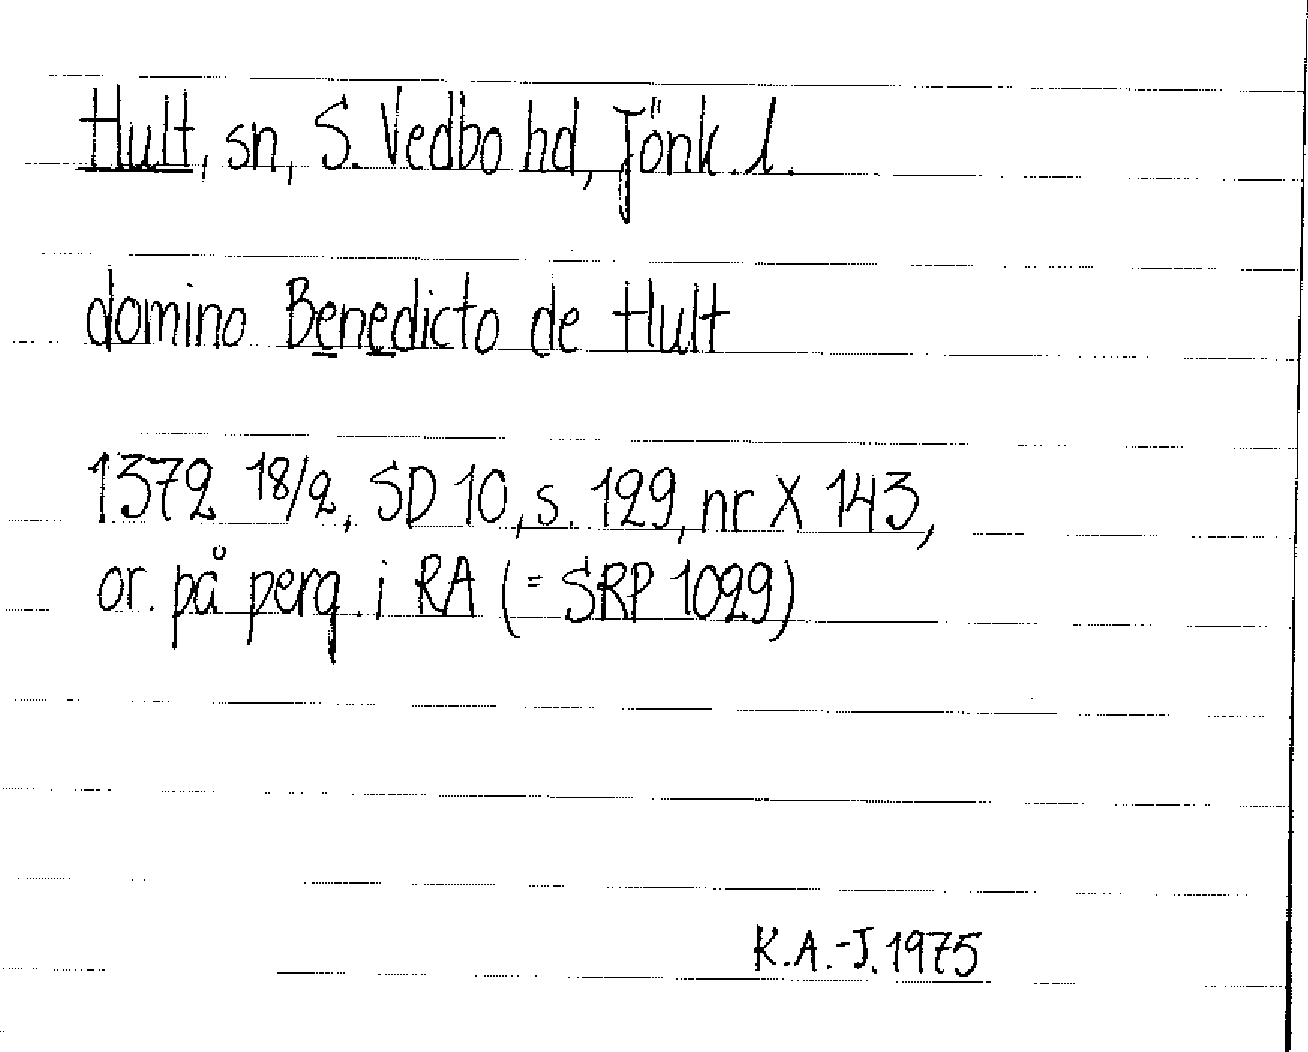 Hult, sn, S. Vedbo hd, Jönk. l.
domino Benedicto de Hult
1372 18/2, SD 10, s. 129, nr X 143,
or. på perg. i RA (= SRP 1029)
K.A.-J. 1975